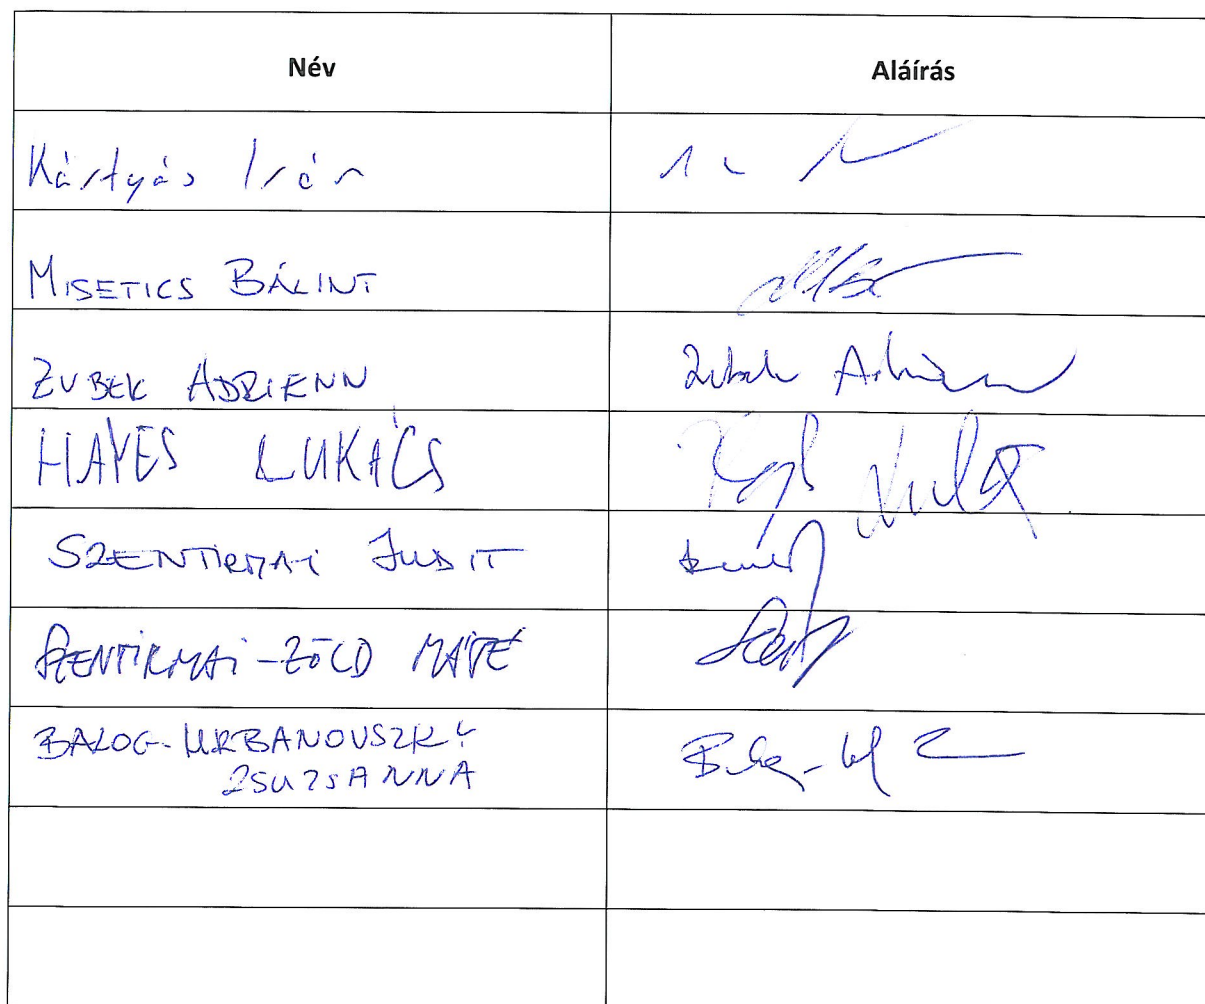 Név Aláírás
Kártyás Irén
MISETICS BÁLINT
ZUBEK ADRIENN Zubek Adrienn
HAYES LUKÁCS
SZENTIRMAI JUDIT
SZENTIRMAI-ZÖLD MÁTÉ
BALOG-URBANOVSZKY
ZSUZSANNA